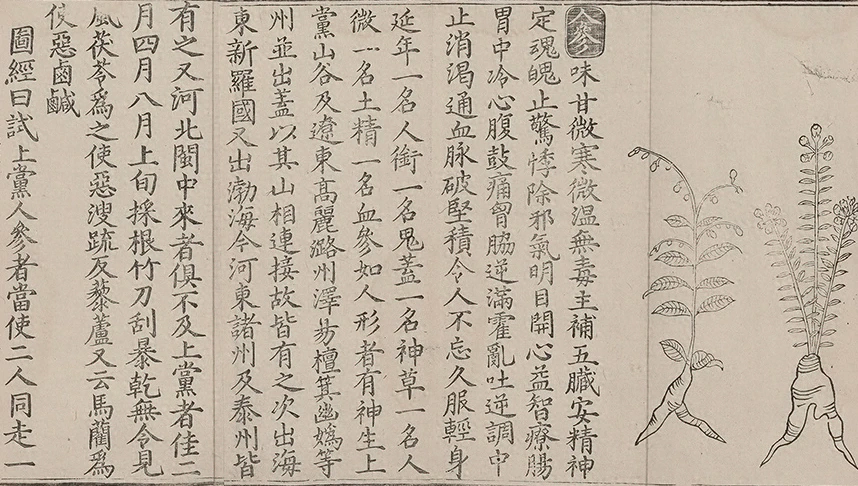 人參味甘微寒微温無毒主補五臟安精神
定魂魄止驚悸除邪氣明目開心益智療腸
胃中冷心腹鼓痛胷脇逆滿霍亂吐逆調中
止消渴通血脉破堅積令人不忘久服輕身
延年一名人銜一名鬼蓋一名神草一名人
微一名土精一名血參如人形者有神生上
黨山谷及遼東高麗潞州澤易檀箕幽嬀等
州並出蓋以其山相連接故皆有之次出海
東新羅國又出渤海今河東諸州及泰州皆
有之又河北閩中來者俱不及上黨者佳二
月四月八月上旬採根竹刀刮暴乾無令見
風茯苓爲之使惡溲疏反藜蘆又云馬藺爲
使惡鹵鹹
圖經曰試上黨人參者當使二人同走一